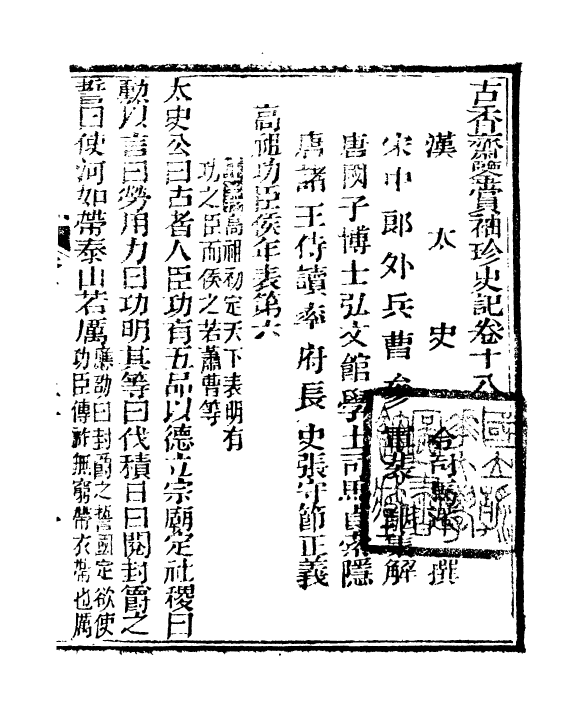 古香齋鑒賞袖珍史記卷十八
漢太史令司馬遷撰
宋中郎外兵曹參軍裴駰集解
唐國子博士弘文館學士司馬貞索隱
唐諸王侍讀率府長史張守節正義
高祖功臣侯年表第六
高祖初定天下表明有
功之臣而侯之若蕭曹等
太史公曰古者人臣功有五品以德立宗廟定社稷曰
勳以言曰勞用力曰功明其等曰伐積日曰閱封爵之
誓曰使河如帶泰山若厲應劭曰封爵之誓國定欲使
功臣傳祚無窮帶衣帶也厲